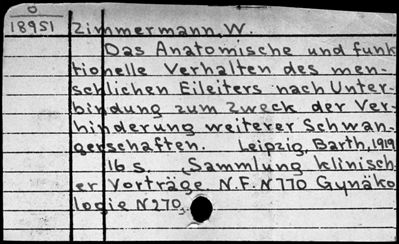 0
18951 Zimmermann, W.
Das Anatomische und funk-
tionelle Verhalten des men-
schlichen Eileiters nach Unter-
bindung zum Zweck der Ver-
hinderung weiterer Schwan-
gerschaften. Leipzig, Barth, 1919
16 s. „Sammlung klinisch-
er Vorträge N.F. N 770 Gynäko
logie N 270.